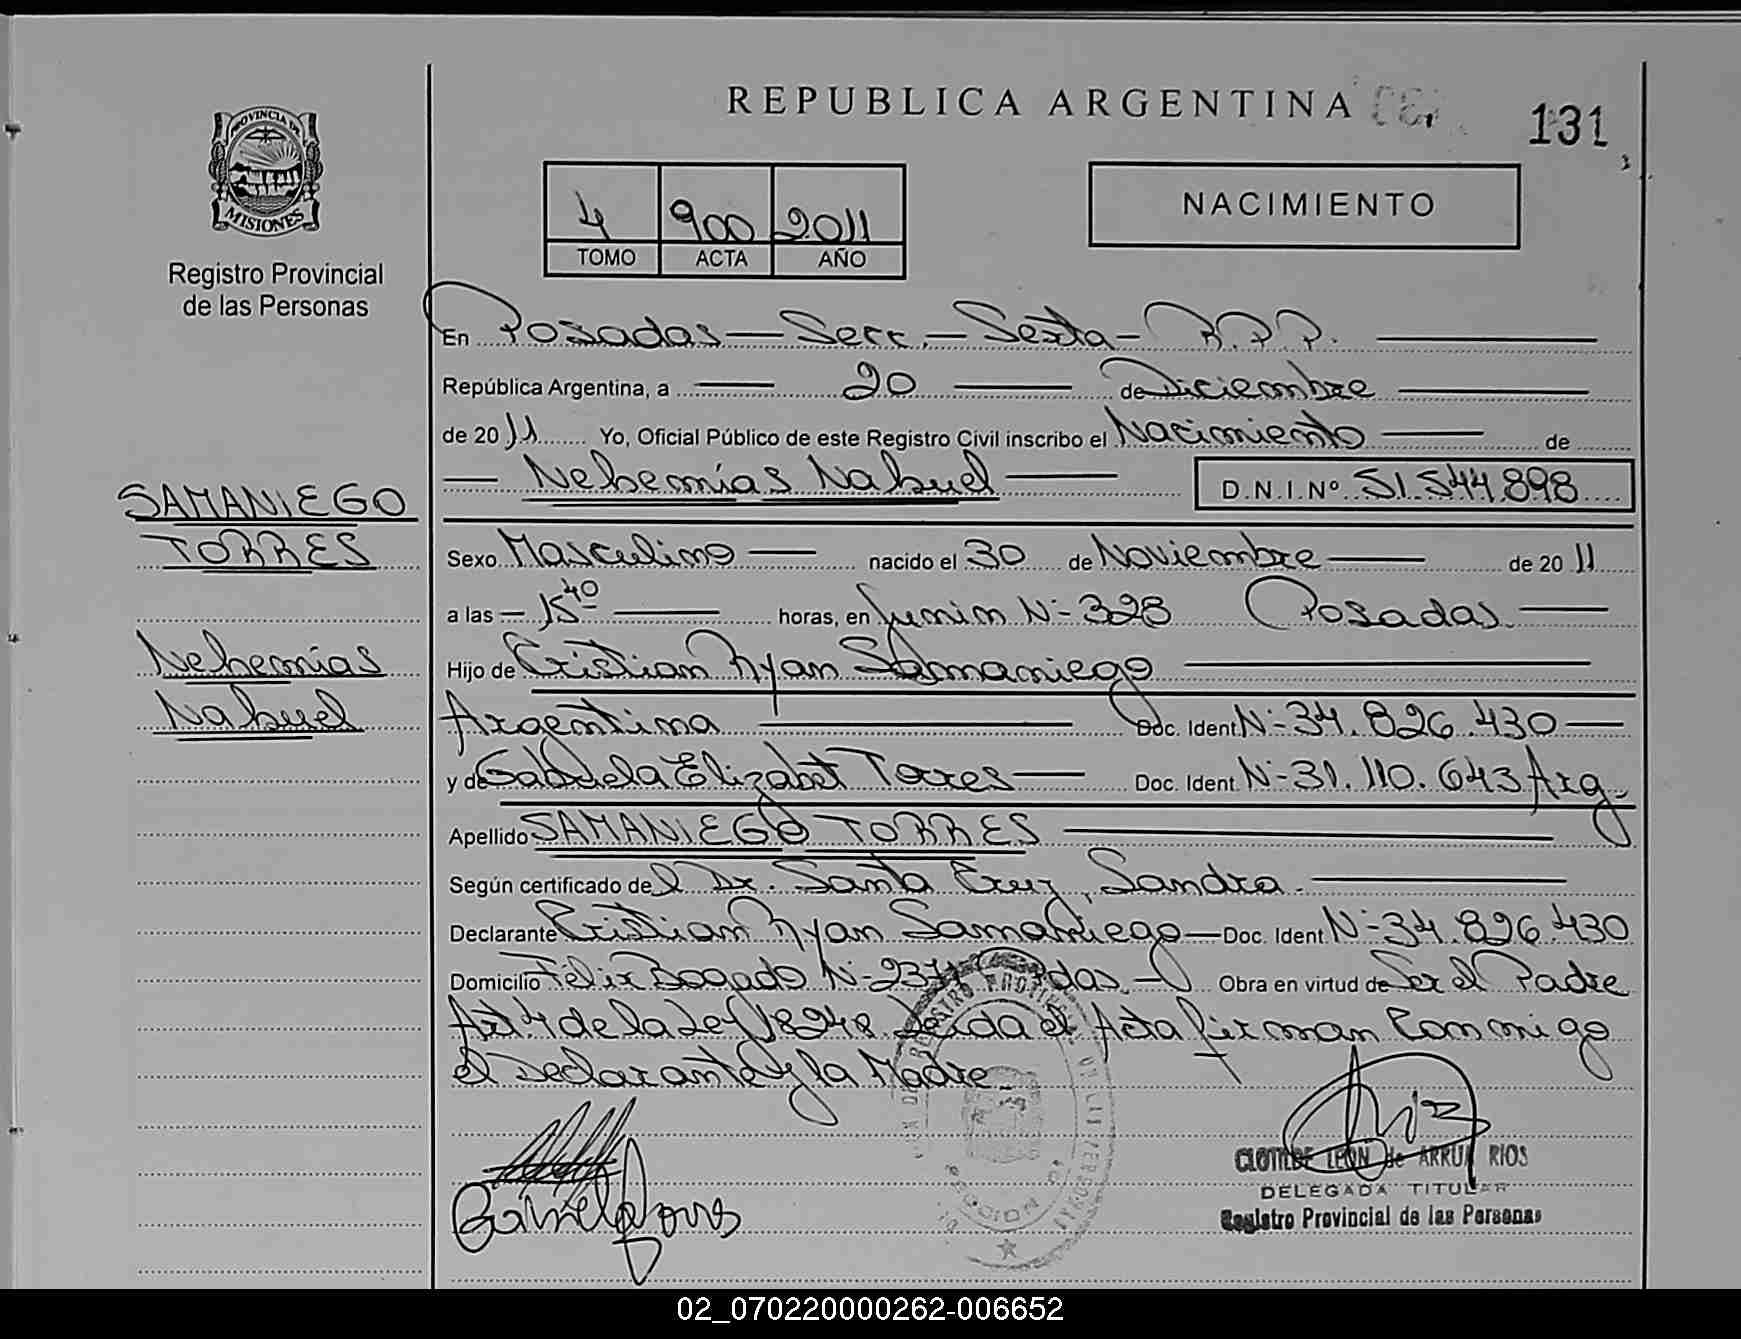 REPUBLICA ARGENTINA
131
PROVINCIA DE
MISIONES
Registro Provincial
de las Personas
4 900 2011
TOMO ACTA AÑO
NACIMIENTO
En Posadas — Secc. — Sexta — R.P.P.
República Argentina, a 20 de Diciembre
de 2011 Yo, Oficial Público de este Registro Civil inscribo el Nacimiento de
Nehemías Nahuel D.N.I.Nº 51.544.898
SAMANIEGO
TORRES
Nehemías
Nahuel
Sexo Masculino nacido el 30 de Noviembre de 2011
a las 15 40 horas, en Junin Nº 328 Posadas
Hijo de Cristian Ryan Samaniego
Argentina Doc. Ident. Nº 34.826.430
y de Gabriela Elizabet Torres Doc. Ident. Nº 31.110.643 Arg.
Apellido SAMANIEGO TORRES
Según certificado del Dr. Santa Cruz, Sandra.
Declarante Cristian Ryan Samaniego — Doc. Ident. Nº 34.826.430
Domicilio Félix Bogado Nº Obra en virtud de Ser el Padre
Art 4 de la Ley 18248. Leida el Acta firman conmigo
el Declarante y la Madre.
CLOTILDE LEON de ARRUA RIOS
DELEGADA TITULAR
Registro Provincial de las Personas
02_070220000262-006652